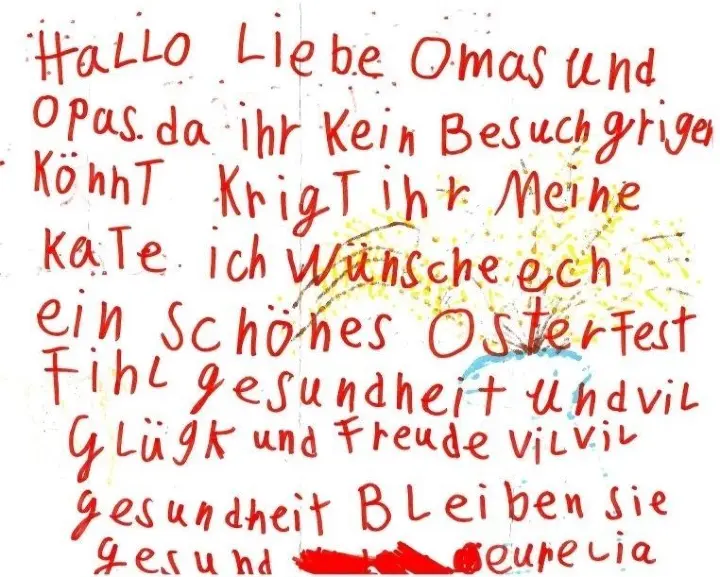 Hallo Liebe Omas und
Opas. da ihr Kein Besuch grigen
könnt Krigt ihr Meine
Kate. ich Wünsche ech
ein schönes Osterfest
Fihl gesundheit und vil
Glügk und Freude vil vil
gesundheit Bleiben sie
gesund eurelia